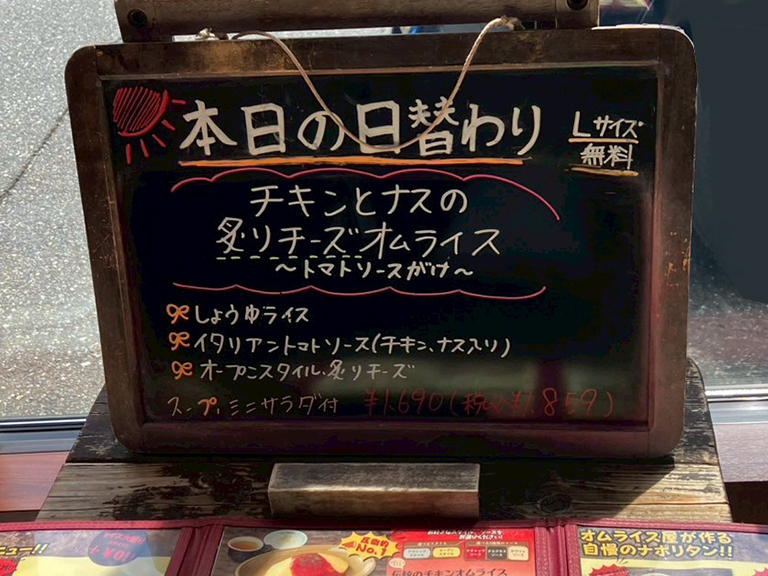 本日の日替わり
Lサイズ
無料
チキンとナスの
炙りチーズオムライス
〜トマトソースがけ〜
しょうゆライス
イタリアントマトソース(チキン、ナス入り)
オープンスタイル、炙りチーズ
スープ、ミニサラダ付 ¥1,690(税込¥1,859)
ュー!!
圧倒的
No.1
伝説のチキンオムライス
オムライス屋が作る
自慢のナポリタン!!